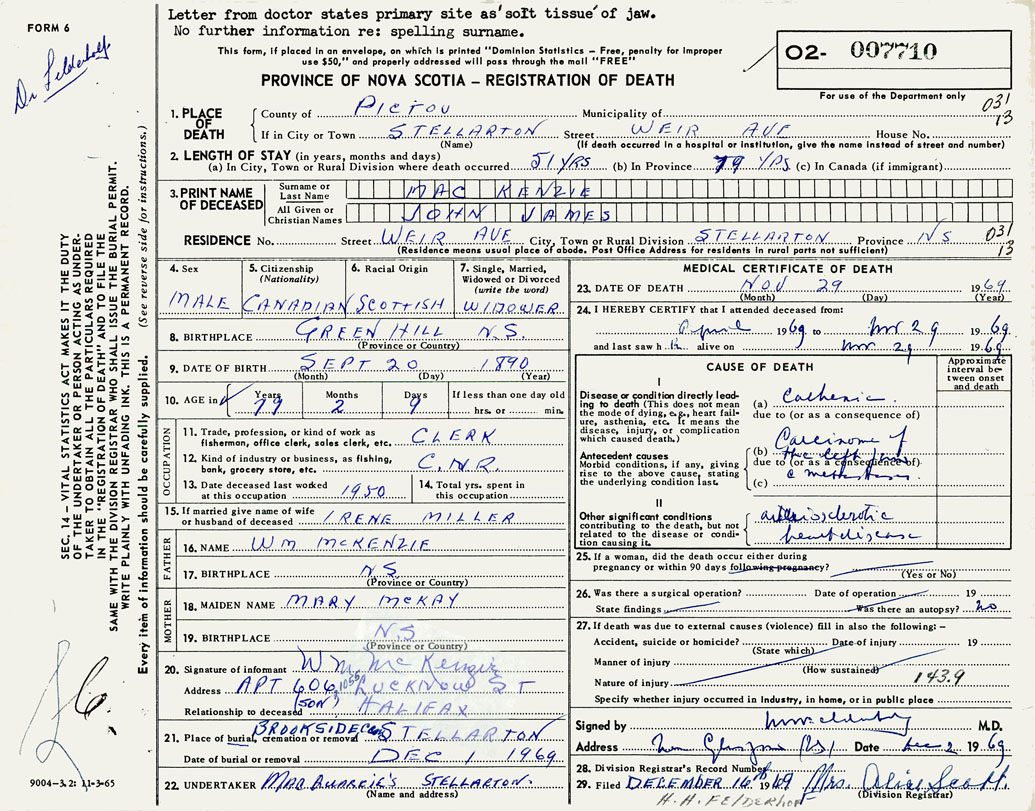 Letter from doctor states primary site as 'soft tissue' of jaw.
No further information re: spelling surname.
FORM 6
This form, if placed in an envelope, on which is printed "Dominion Statistics – Free, penalty for improper
use $50," and properly addressed will pass through the mail "FREE"
PROVINCE OF NOVA SCOTIA – REGISTRATION OF DEATH
O2- 007710
For use of the Department only
031
13
1. PLACE OF DEATH
County of PICTOU Municipality of
If in City or Town STELLARTON Street WEIR AVE House No.
(Name) (If death occurred in a hospital or institution, give the name instead of street and number)
2. LENGTH OF STAY (in years, months and days)
(a) In City, Town or Rural Division where death occurred 51 YRS (b) In Province 79 YRS (c) In Canada (if immigrant)
3. PRINT NAME OF DECEASED
Surname or Last Name MAC KENZIE
All Given or Christian Names JOHN JAMES
RESIDENCE No. Street WEIR AVE City, Town or Rural Division STELLARTON Province NS 031
(Residence means usual place of abode. Post Office Address for residents in rural parts not sufficient) 13
4. Sex MALE
5. Citizenship (Nationality) CANADIAN
6. Racial Origin SCOTTISH
7. Single, Married, Widowed or Divorced (write the word) WIDOWER
8. BIRTHPLACE GREEN HILL N.S.
(Province or Country)
9. DATE OF BIRTH SEPT 20 1890
(Month) (Day) (Year)
10. AGE in Years 79 Months 2 Days 9 If less than one day old hrs. or min.
OCCUPATION
11. Trade, profession, or kind of work as fisherman, office clerk, sales clerk, etc. CLERK
12. Kind of industry or business, as fishing, bank, grocery store, etc. C.N.R.
13. Date deceased last worked at this occupation 1950
14. Total yrs. spent in this occupation
15. If married give name of wife or husband of deceased IRENE MILLER
FATHER
16. NAME WM MCKENZIE
17. BIRTHPLACE NS
(Province or Country)
MOTHER
18. MAIDEN NAME MARY MCKAY
19. BIRTHPLACE N.S
(Province or Country)
20. Signature of informant Wm. McKenzie
Address APT 606 1055 LUCKNOW ST
Relationship to deceased (SON) HALIFAX
21. Place of burial, cremation or removal BROOKSIDE CEM STELLARTON
Date of burial or removal DEC 1 1969
22. UNDERTAKER STELLARTON.
(Name and address)
MEDICAL CERTIFICATE OF DEATH
23. DATE OF DEATH NOV 29 1969
(Month) (Day) (Year)
24. I HEREBY CERTIFY that I attended deceased from:
April 1969 to Nov 29 1969
and last saw h im alive on Nov 29 1969
CAUSE OF DEATH
Approximate interval between onset and death
I
Disease or condition directly leading to death (This does not mean the mode of dying, e.g., heart failure, asthenia, etc. It means the disease, injury, or complication which caused death.)
(a)
due to (or as a consequence of)
Antecedent causes
Morbid conditions, if any, giving rise to the above cause, stating the underlying condition last.
(b) Carcinoma of the left
due to (or as a consequence of)
(c) c metastases
II
Other significant conditions contributing to the death, but not related to the disease or condition causing it.
arteriosclerotic
heart disease
25. If a woman, did the death occur either during
pregnancy or within 90 days following pregnancy?
(Yes or No)
26. Was there a surgical operation? Date of operation 19
State findings Was there an autopsy? no
27. If death was due to external causes (violence) fill in also the following: –
Accident, suicide or homicide? Date of injury 19
(State which)
Manner of injury
(How sustained)
Nature of injury 143.9
Specify whether injury occurred in Industry, in home, or in public place
Signed by M.D.
Address New Glasgow (NS) Date Dec 2 1969
28. Division Registrar's Record Number
29. Filed DECEMBER 10th 1969 Mrs. Alice Scott.
(Division Registrar)
H.H. FELDERHOF
Dr Felderhof
SEC. 14 – VITAL STATISTICS ACT MAKES IT THE DUTY
OF THE UNDERTAKER OR PERSON ACTING AS UNDER-
TAKER TO OBTAIN ALL THE PARTICULARS REQUIRED
IN THE "REGISTRATION OF DEATH" AND TO FILE THE
SAME WITH THE DIVISION REGISTRAR WHO SHALL ISSUE THE BURIAL PERMIT.
WRITE PLAINLY WITH UNFADING INK. THIS IS A PERMANENT RECORD.
Every item of information should be carefully supplied. (See reverse side for instructions.)
9004–3.2: 11-3-65